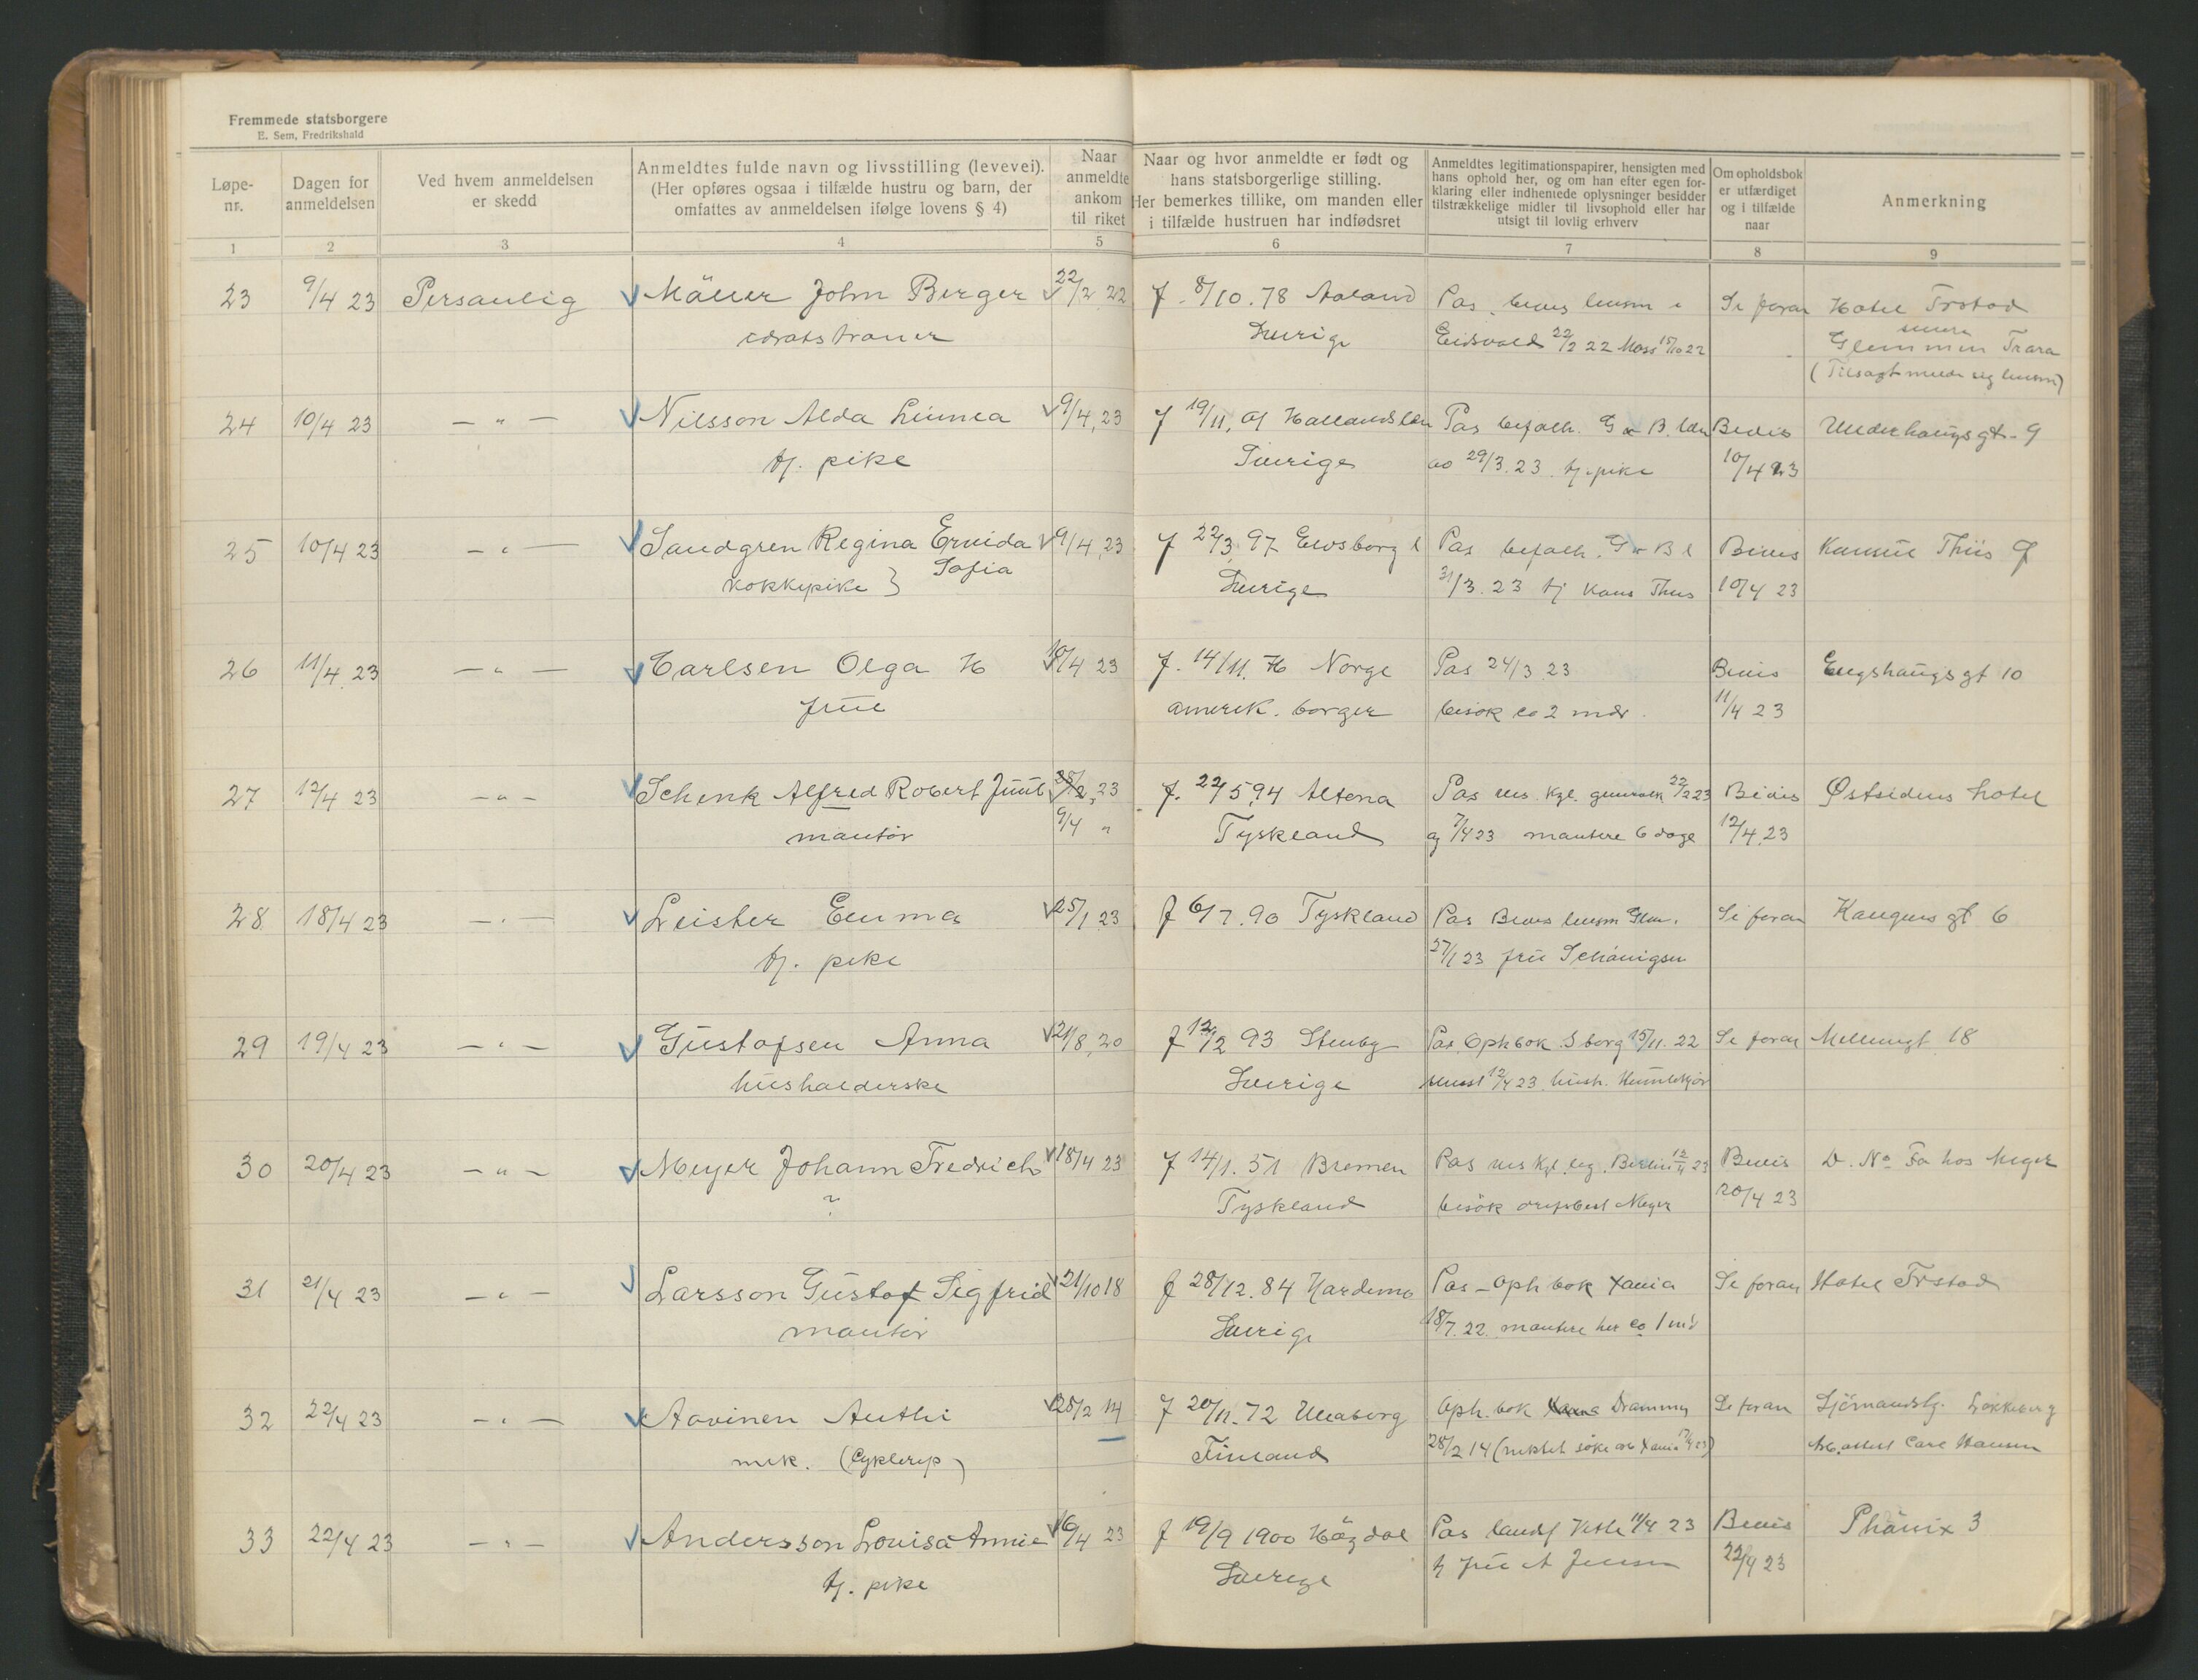 Fremmede statsborgere
E. Sem, Fredrikshald
Løpe-
nr.
Dagen for
anmeldelsen
Ved hvem anmeldelsen
er skedd
Anmeldtes fulde navn og livsstilling (levevei).
(Her opføres ogsaa i tilfælde hustru og barn, der
omfattes av anmeldelsen ifølge lovens § 4)
Naar
anmeldte
ankom
til riket
Naar og hvor anmeldte er født og
hans statsborgerlige stilling.
Her bemerkes tillike, om manden eller
i tilfælde hustruen har indfødsret
Anmeldtes legitimationspapirer, hensigten med
hans ophold her, og om han efter egen for-
klaring eller indhentede oplysninger besidder
tilstrækkelige midler til livsophold eller har
utsigt til lovlig erhverv
Om opholdsbok
er utfærdiget
og i tilfælde
naar
Anmerkning
1 2 3 4 5 6 7 8 9
23 9/4 23 Personlig Mäller John Birger 22/2 22 f. 8/10.78 Aaland Pas, bevis lensm i Se foran Hotel Frstad
idrætstræner Sverige Eidsvold 22/2 22 Moss 15/10 22 senere
Glemmen Trara
(Tilsagt melde sig lensm)
24 10/4 23 — " — Nilsson Alda Linnea 9/4, 23 f 19/11, 01 Hallandslän Pas befalh. G o B. län Bevis Underhaugsgt. 9
tj. pike Sverige av 29/3. 23 tj. pike 10/4 23
25 10/4 23 — " — Sandgren Regina Ervida 9/4, 23 f 22/3 97 Elvsborg l Pas befalh. G o B l Bevis Thiis
kokkepike } Sofia Sverige 31/3. 23 tj Kons Thiis 10/4 23
26 11/4 23 — " — Carlsen Olga H 10/4 23 f. 14/11. Norge Pas 24/3 23 Bevis Engshaugsgt 10
frue amerik. borger besøk ca 2 mdr. 11/4 23
27 12/4 23 — " — Schenk Alfred Robert 28/2, 23 f. 22/5 94 Altena Pas vis. Kgl. generalk 22/2 23 Bevis Østsidens hotel
montør 9/4 " Tyskland og 7/4 23 montere 6 dage 12/4. 23
28 18/4 23 — " — Leister Emma 25/1 23 f 6/7. 90 Tyskland Pas Bevis lensm Glem. Se foran Kongens gt 6
tj. pike 27/1 23 frue Schönigsen
29 19/4 23 — " — Gustafsen Anna 21/8, 20 f 12/2 93 Stenby Pas, Ophbok S borg 15/11. 22 Se foran Mellemgt 18
husholderske Sverige 12/4 23 hush.
30 20/4 23 — " — Meyer Johann Fredrich 18/4 23 f 14/1. 51 Bremen Pas vis Kgl. leg. Berlin 12/4 23 Bevis D. No Fa hos Meyer
? Tyskland besøk Meyer 20/4 23
31 21/4 23 — " — Larsson Gustaf Sigfrid 21/10 18 f 28/12. 84 Hardemo Pas – Oph bok Xania Se foran Hotel Frstad
montør Sverige 18/7. 22. montere her ca 1 md
32 22/4 23 — " — Aovinen Anthi 28/2 14 f 20/11. 72 Uleaborg Oph. bok Drammen Se foran Sjömandshj. Lökkeberg
mek. (Cyklerep) Finland 28/2 14 søke arb Xania Arb. attest Carl Hansen
33 22/4 23 — " — Andersson Lovisa Annie 16/4 23 f 19/9 1900 Högdal Pas landsf 11/4 23 Bevis Phönix 3
tj. pike Sverige tj frue A Jensen 22/4 23